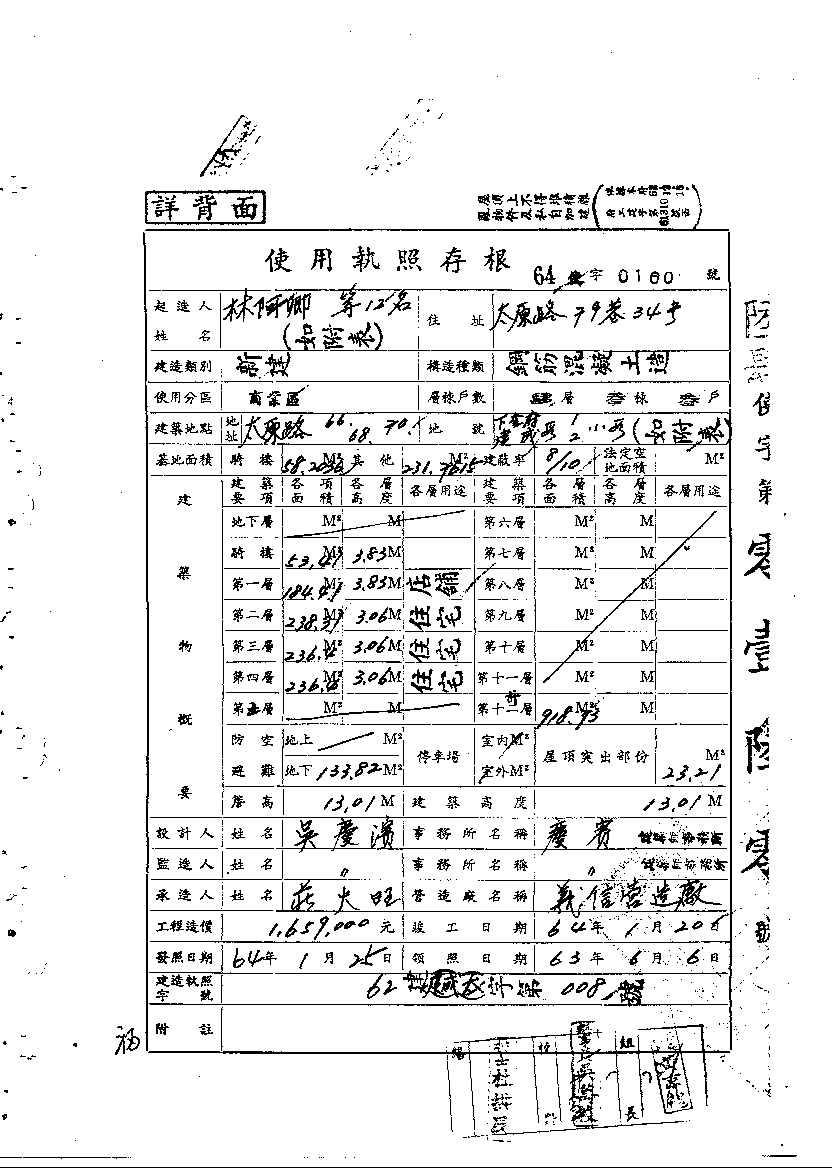 詳背面
屋頂上不得堆積雜
使用執照存根
64 字 0160 號
起造人姓名 林阿卿 等12名 (如附表) 住址 太原路79巷34号
建造類別 新建 構造種類 鋼筋混凝土造
使用分區 商業區 層棟戶數 層 棟 戶
建築地點 地址 太原路 66. 68. 70. 地號 (如附表)
基地面積 騎樓 M² 其他 231.7615 M² 建蔽率 8/10 法定空地面積 M²
建築物概要 建築要項 各項面積 各層高度 各層用途 建築要項 各層面積 各層高度 各層用途
地下層 M² M 第六層 M² M
騎樓 53.49 M² 3.83M 第七層 M² M
第一層 184.49 M² 3.83M 店舖 第八層 M² M
第二層 238.39 M² 3.06M 住宅 第九層 M² M
第三層 M² 3.06M 住宅 第十層 M² M
第四層 M² 3.06M 住宅 第十一層 M² M
第五層 M² M 第十二層 918.93 M² M
防空避難 地上 M² 停車場 室內M² 屋頂突出部份 M²
地下 133.82 M² 室外M² 23.21
簷高 13.01 M 建築高度 13.01 M
設計人 姓名 吳慶濱 事務所名稱 慶賓
監造人 姓名 〃 事務所名稱 〃
承造人 姓名 莊火旺 營造廠名稱 義信營造廠
工程造價 1,659,000 元 竣工日期 64年 1月 20日
發照日期 64年 1月 25日 領照日期 63年 6月 6日
建造執照字號 62 008
附註
福
使字第零壹陸零號
組長